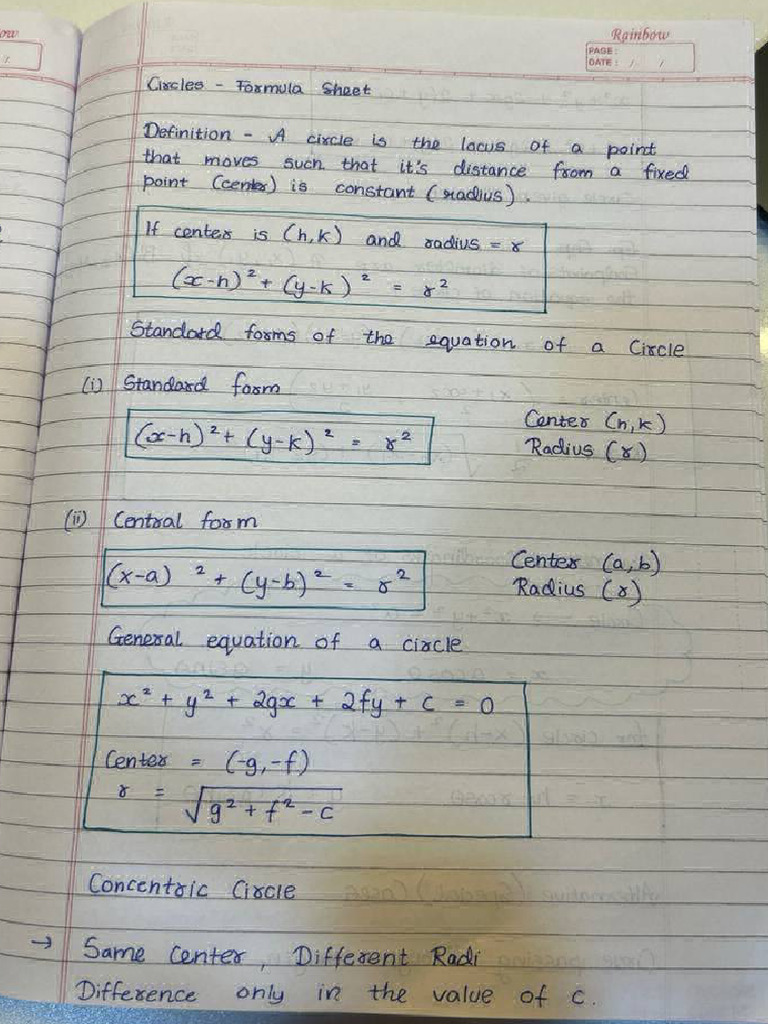 Rainbow
PAGE:
DATE: / /
Circles - Formula Sheet
Definition - A circle is the locus of a point
that moves such that it's distance from a fixed
point (center) is constant (radius).
If center is (h,k) and radius = r
(x-h)² + (y-k)² = r²
Standard forms of the equation of a Circle
(i) Standard form
(x-h)² + (y-k)² = r²
Center (h,k)
Radius (r)
(ii) Central form
(x-a)² + (y-b)² = r²
Center (a,b)
Radius (r)
General equation of a circle
x² + y² + 2gx + 2fy + c = 0
Center = (-g,-f)
r = √g² + f² - c
Concentric Circle
→ Same Center, Different Radi
Difference only in the value of c.